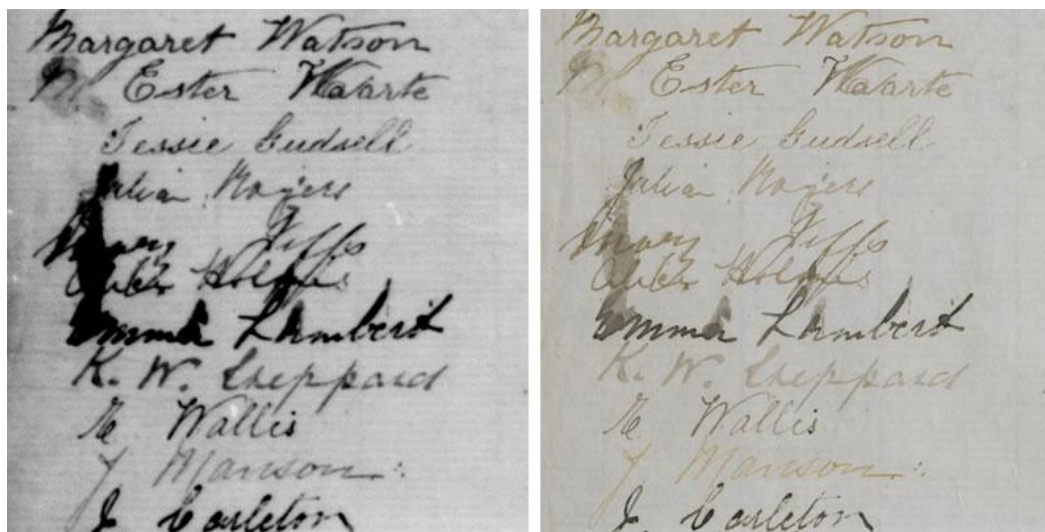 Margaret Watson
M. Ester Waarte
Jessie Gudsell
Julia Rogers
Mary Jiffs
Holmes
Emma Lambert
K. W. Sheppard
E Wallis
J Manson
J. Carleton
Margaret Watson
M. Ester Waarte
Jessie Gudsell
Julia Rogers
Mary Jiffs
Holmes
Emma Lambert
K. W. Sheppard
E Wallis
J Manson
J. Carleton